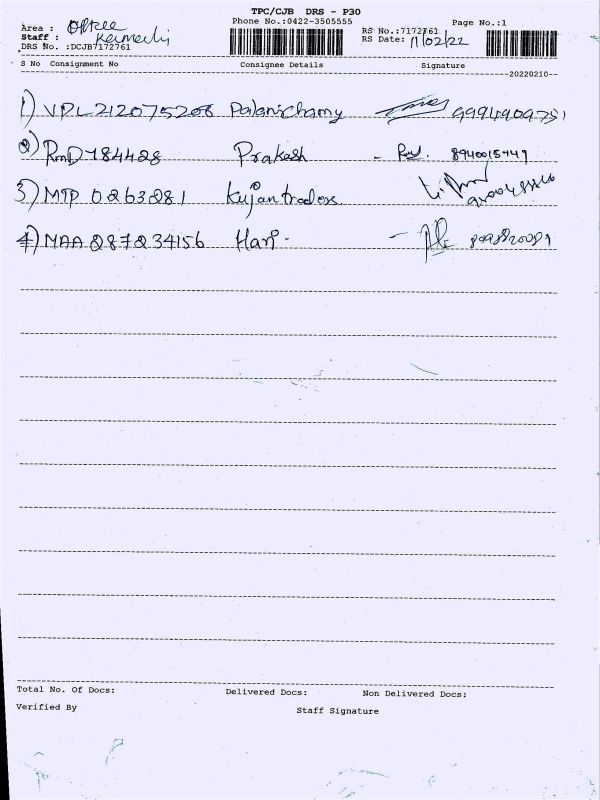 TPC/CJB DRS - P30
Phone No.:0422-3505555 Page No.:1
Area : Office
Staff : RS No.:7172761
DRS No. :DCJB7172761 RS Date: 11/02/22
S No Consignment No Consignee Details Signature
--20220210--
1) VPL212075208 Palanichamy 9994909751
2) RMD784428 Prakash - 8940015749
3) MTP 0263281 Kujan traders
4) MAA287234156 Hari -
Total No. Of Docs: Delivered Docs: Non Delivered Docs:
Verified By Staff Signature